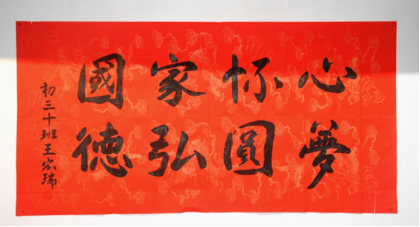 心怀家國
夢圓弘德
初三十班王瑞